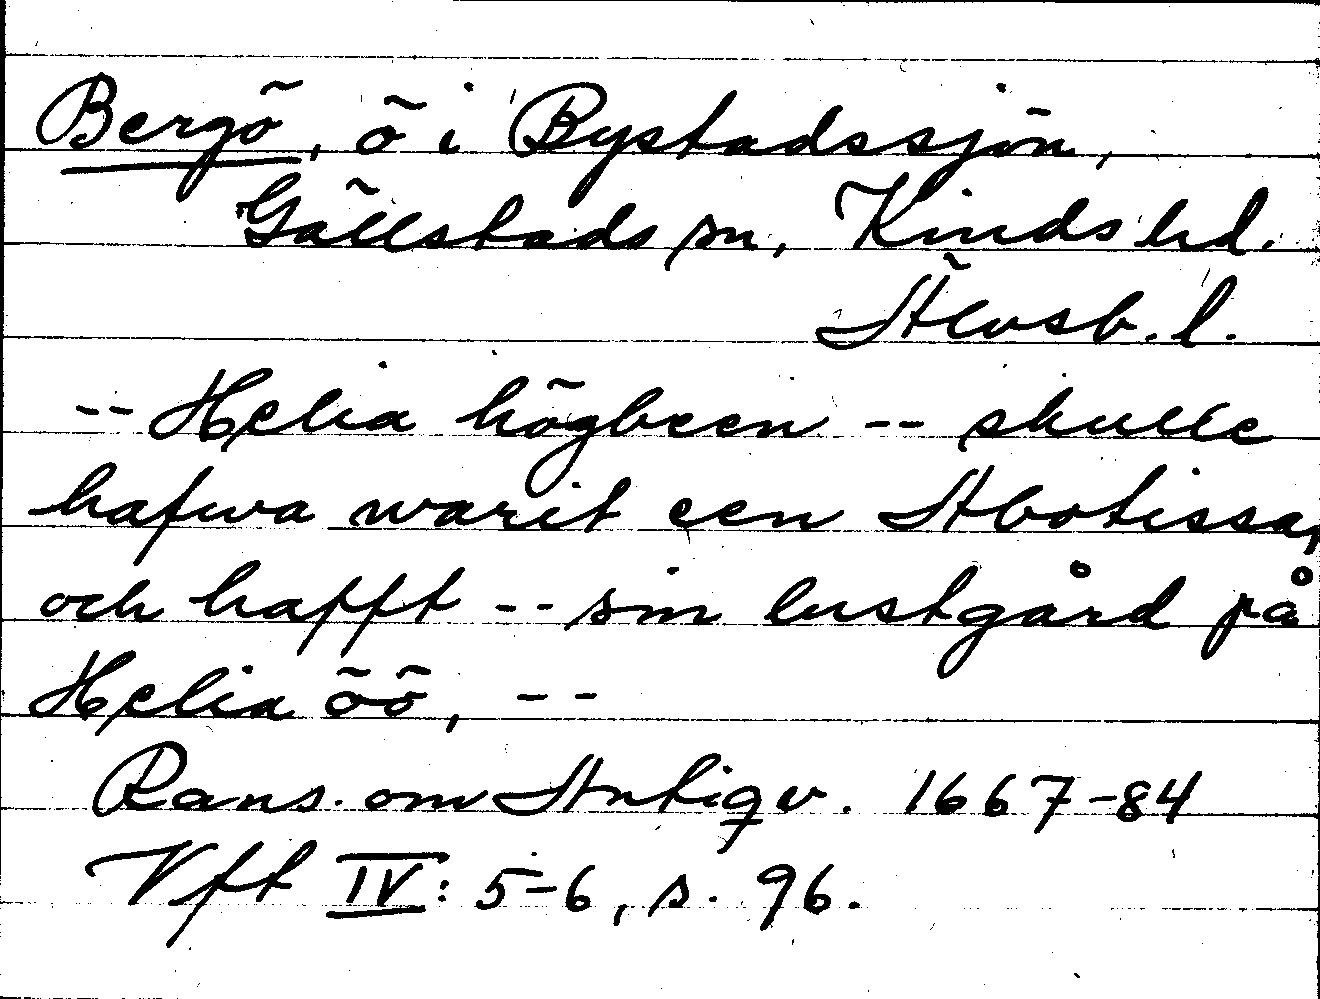 Bergö, ö i Bystadssjön,
Gällstads sn, Kinds hd.
Älvsb. l.
-- Helia högbeen -- skulle
hafwa warit een Abotissa,
och hafft -- sin lustgård på
Helia öö, --
Rans. om Antiqv. 1667-84
Vft IV: 5-6, s. 96.